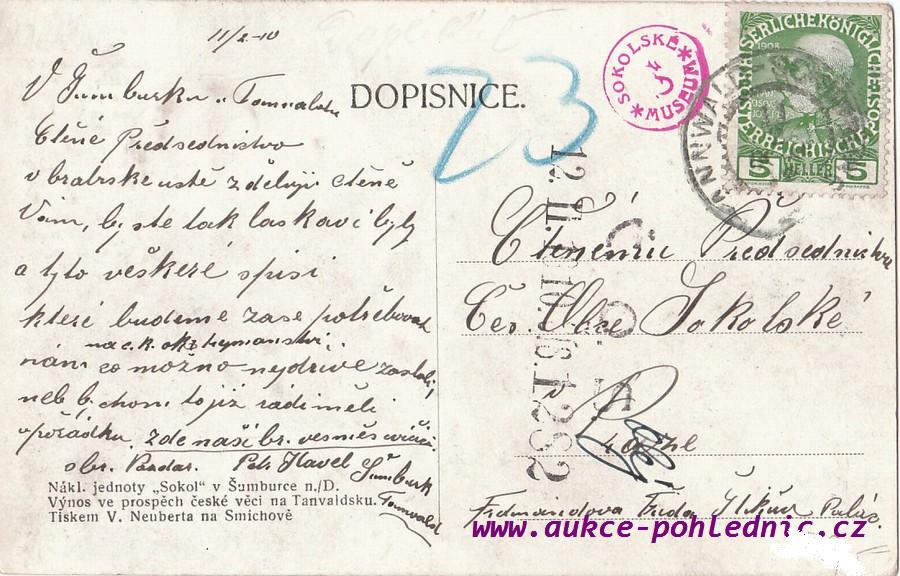 11/2-10
V Šumburku u Tannvaldu
DOPISNICE.
23
SOKOLSKÉ MUSEUM
1908
KAISERLICHE KÖNIGLICHE POST
ÖSTERREICHISCHE
5 HELLER 5
TANNWALD
Ctěné Předsednictvo
v bratrské ustě zděluji ctěně
Vám, by ste tak laskaví byly
a tyto veškeré spisi
které budeme zase potřebovat
na c.k.
nám co možno nejdrive zaslali,
neb bychom to již rádi měli
v pořádku, zde naší br. vesměs cvičí
obr. Pozdar. Petr Havel Šumburk
Tannwald
Nákl. jednoty „Sokol" v Šumburce n./D.
Výnos ve prospěch české věci na Tanvaldsku.
Tiskem V. Neuberta na Smichově
12. II. 1910
1282
Ctěnému Předsednictvu
Čes. Obce Sokolské
Praze
Ferdinandova Třída Palác.
www.aukce-pohlednic.cz